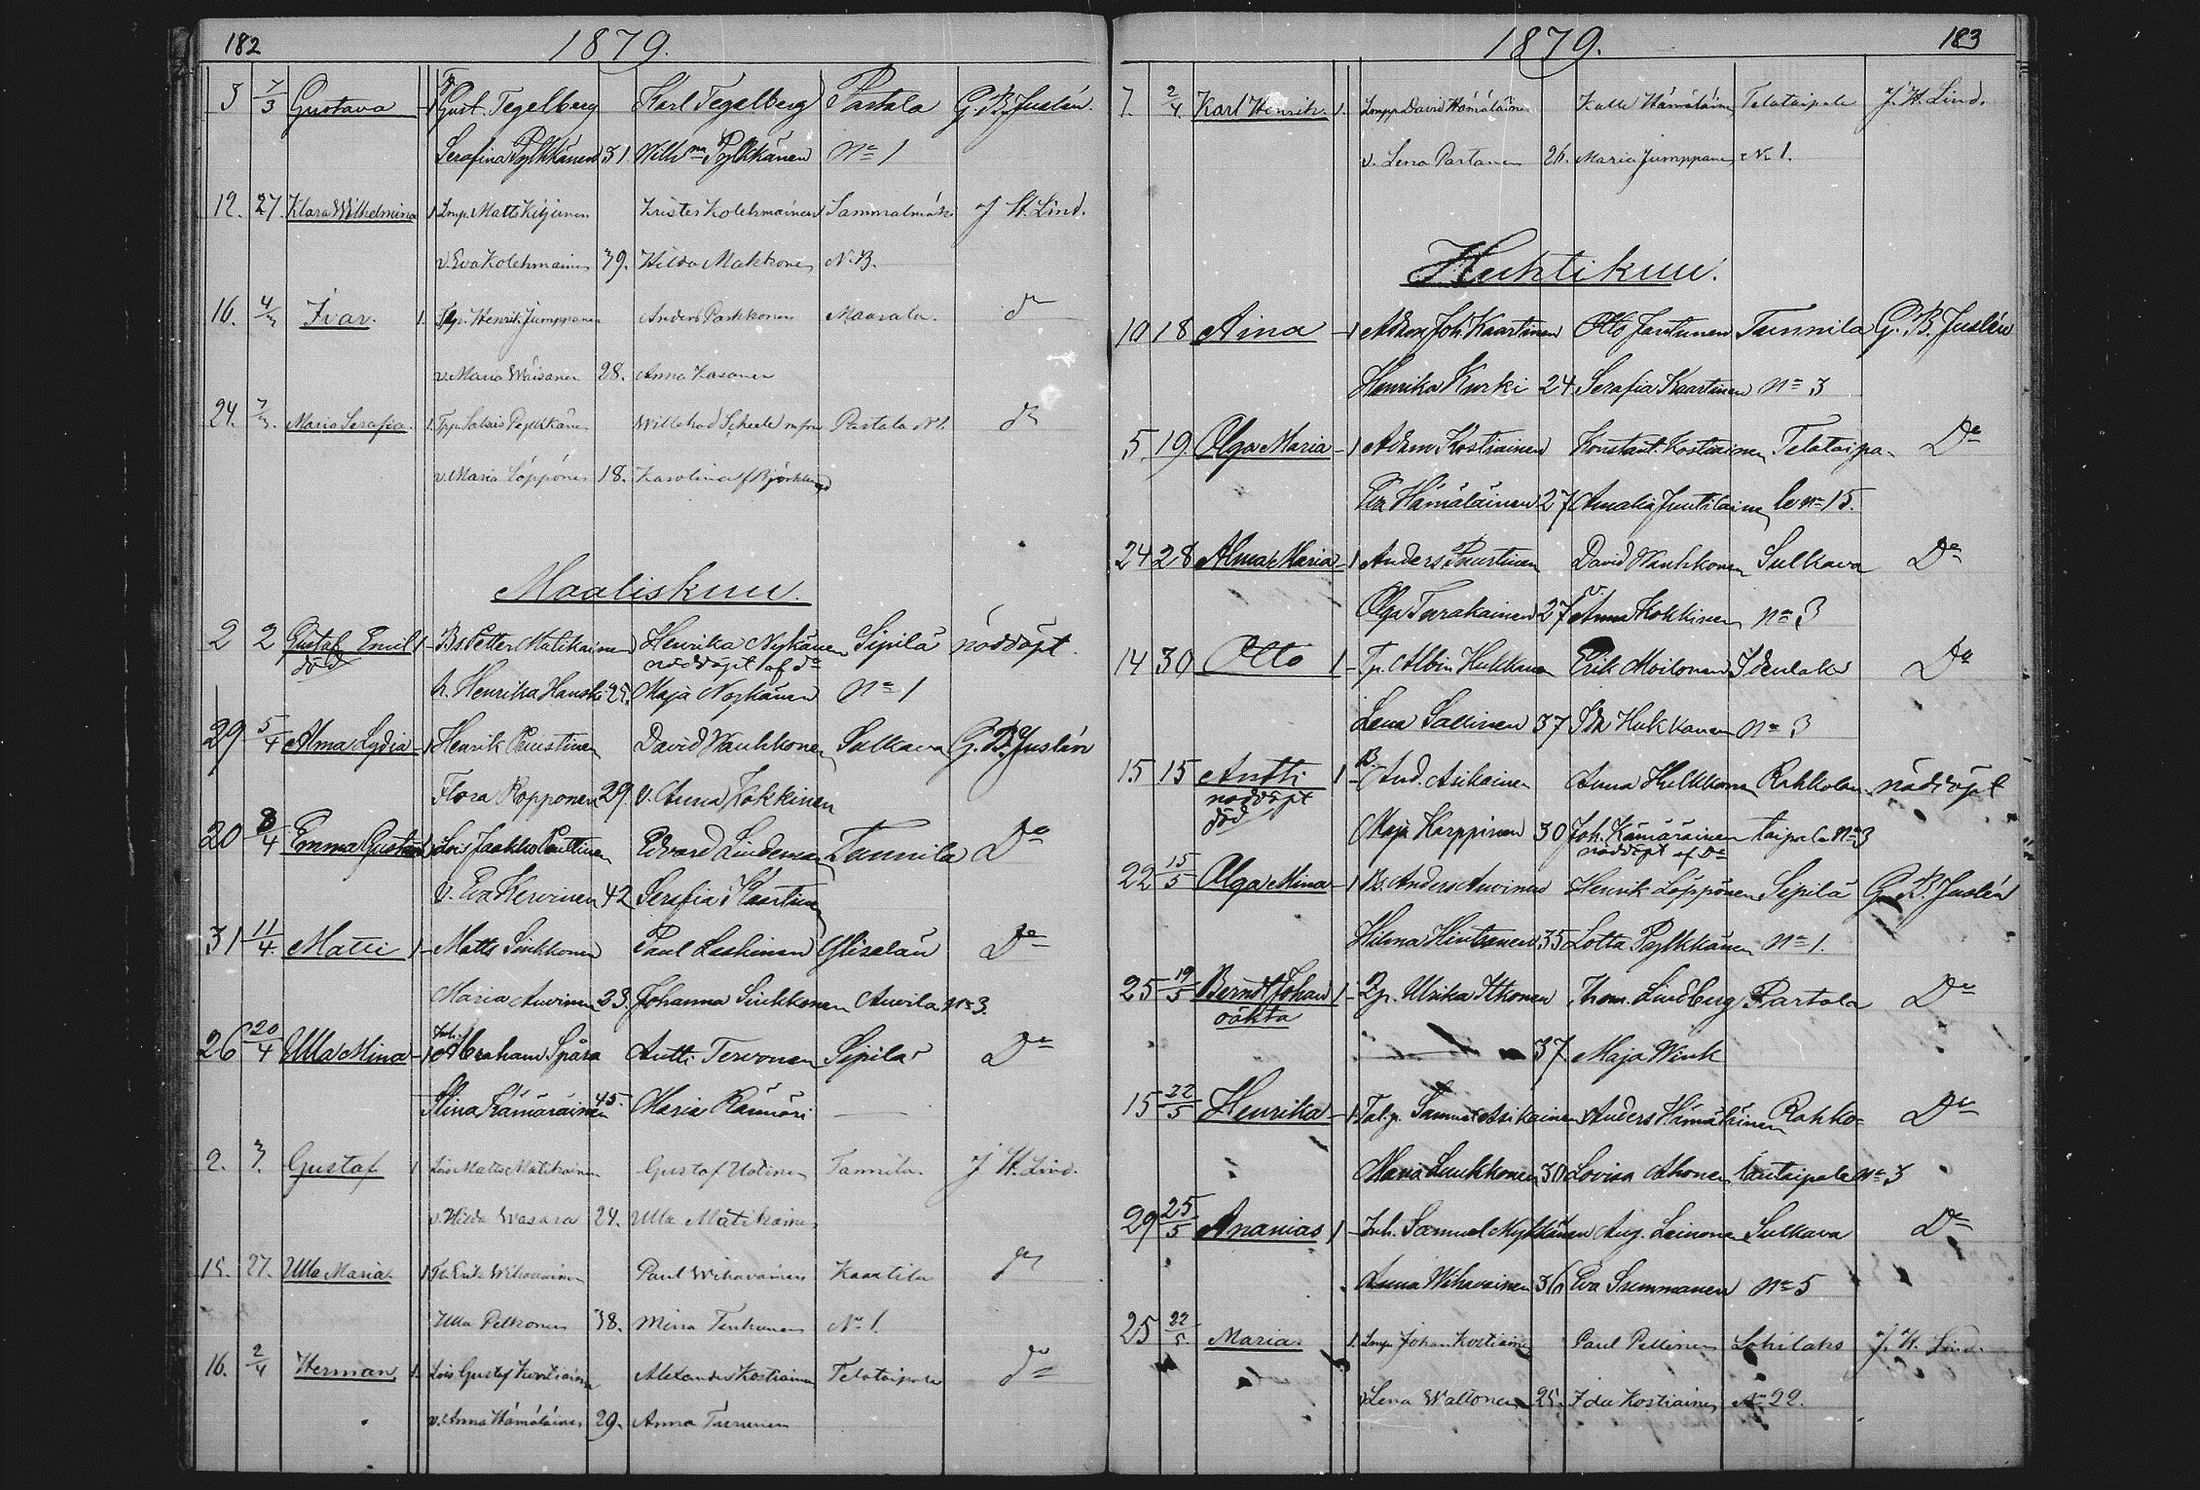 182 1879.
3 7/3 Gustava 1 Gust. Tegelberg Karl Tegelberg Partala G. B. Juslén.
Serafina Pylkkänen 31 Wilhma Pylkkänen No 1
12. 27. Klara Wilhelmina 1 Lmp. Matts Kolehmainen Sammalniok J. H. Lind.
v. Eva Kolehmainen 39. Hilda Makkonen N. B.
16. 4/3 Ivar. 1. Henrik Jumppanen Anders Parkkonen Maarala. do
v. Maria Wäisänen 28. Anna Kasanen
24. 7/3. Maria Serafia. 1. Pylkkänen Willehad Scheele Partala No 1. do
v. Maria Löppönen 18. Karolina Björklund
Maaliskuu.
2 2 Gustaf Emil 1 Bs. Petter Matikainen Henrika Nykänen Sipilä nöddöpt.
död nöddöpt af do
h. Henrika Hanski 25. Maja Nykänen No 1
29 5/4 Alma Lydia 1 Henrik Puustinen David Wauhkonen Sulkava G. B. Juslén
Flora Ropponen 29 v. Anna Kokkinen
20 8/4 Emma Gustava Lois Jaakko Puttinen Edvard Lindeman Tannila Do
v. Eva Kervinen 42 Serafia Kaartinen
31 11/4. Matti 1 Matts Sinkkonen Paul Laskinen Do
Maria Auvinen 33. Johanna Sinkkonen Auvila No 3.
26 20/4 Ulla Mina 1 Abraham Spåra Antti Tervonen Sipilä Do
Stina Kämäräinen 45. Maria Rännäri
2. 3. Gustaf 1 Lois Matts Matikainen Gustaf Uotinen Tannila J. H. Lind.
v. Hilda Wasara 24. Ulla Matikainen
15. 27. Ulla Maria. 1 Erik Wihavainen Paul Wihavainen Kaartila do
Ulla Pelkonen 38. Minna Tenhunen No 1.
16. 2/4 Herman 1. Lois Gustaf Kostiainen Alexander Kostiainen Telataipale do
v. Anna Hämäläinen 29. Anna
1879. 183
7. 2/4. Karl Henrik. 1. Lmpp David Hämäläinen Kalle Hämäläinen Telataipale J. H. Lind.
v. Lena Partanen 26. Maria Jumppanen No 1.
Huhtikuu.
10 18 Aina 1 Adam Joh. Kaartinen Otto Jantunen Tannila G. B. Juslén
Henrika Kurki 24 Serafia Kaartinen No 3
5 19. Olga Maria 1 Adam Kostiainen Konstant. Kostiainen Telataipa- Do
Eva Hämäläinen 27 Amalia Juutilainen le No 15.
24 28 Alma Maria 1 Anders Puustinen David Wauhkonen Sulkava Do
Olga Turakainen 27 v. Anna Kokkinen No 3
14 30 Otto 1 Tp. Albin Hukkanen Erik Moilanen Idenlaks Do
Lena Sallinen 37 Ida Hukkanen No 3
15 15 Antti 1 And. Asikainen Anna Hulkkonen Rahkolan- nöddöpt
nöddöpt
död Maja Karppinen 30 Joh. Kämäräinen taipale No 3
nöddöpt af Do
22 15/5 Olga Mina 1 Bs. Anders Auvinen Henrik Löppönen Sipilä G. B. Juslén
Hilma Hintsanen 35 Lotta Pylkkänen No 1.
25 19/5 Bernd Johan 1 Pg. Ulrika Itkonen Thom. Lindberg Partala Do
oäkta
37 Maja Wink
15 22/5 Henrika 1 Samuel Asikainen Anders Hämäläinen Rahko- Do
Maria Luukkonen 30 Lovisa Ahonen lantaipale No 3
29 25/5 Ananias 1 Inh. Samuel Nykänen Aug. Leinonen Sulkava Do
Anna Wihavainen 36 Eva Summanen No 5
25 22/5 Maria. 1. Lmp. Johan Kostiainen Paul Pellinen Lohilaks J. H. Lind.
v. Lena Waltonen 25. Ida Kostiainen No 22.